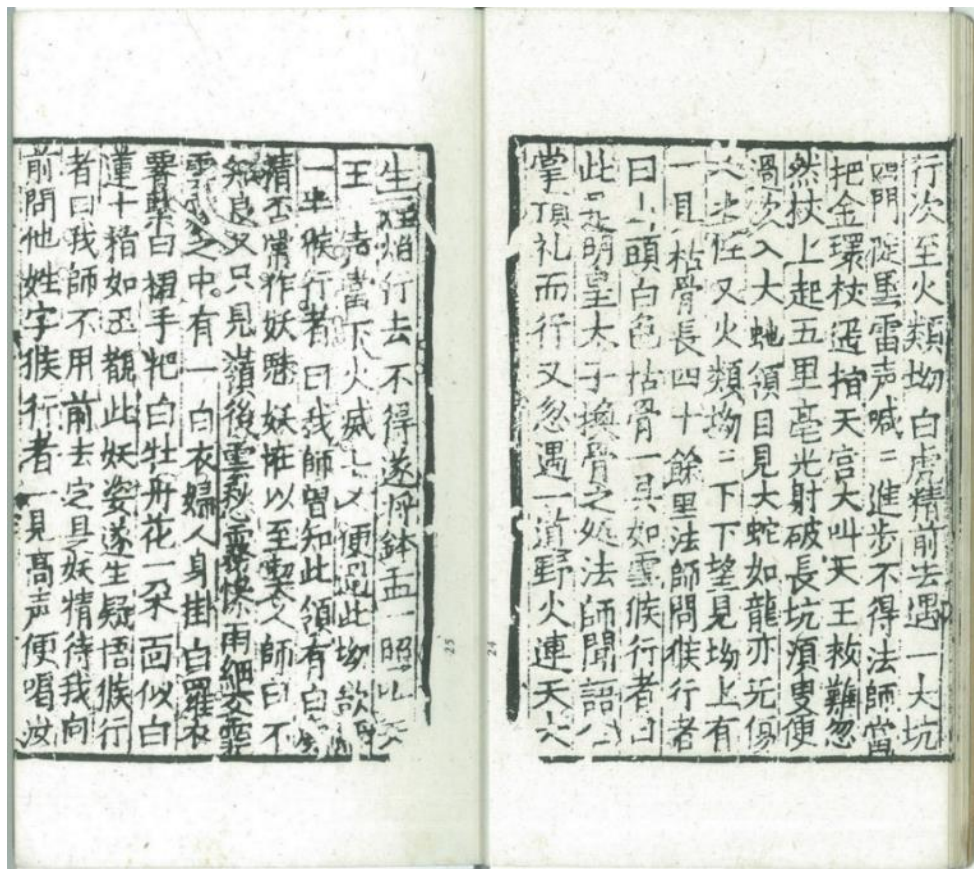 行次至火類坳白虎精前去遇一大坑
四門陡黑雷声喊〻進步不得法師當
把金環杖遥指天宫大叫天王救難忽
然杖上起五里毫光射破長坑湏叟便
過次入大虵領目見大蛇如龍亦无傷
人之性又火類坳〻下下望見坳上有
一具枯骨長四十餘里法師問猴行者
曰山頭白色枯骨一具如雪猴行者曰
此是明皇太子換骨之处法師聞語合
掌頂礼而行又忽遇一道野火連天大
24
25
生煙焰行去不得遂将鉢盂一照叫
王 声當下火滅七人便過此坳欲
一半猴行者曰我師曽知此領有白
精否常作妖魅妖恠以至喫人師曰不
知良久只見嶺後雲愁霧慘雨細交霏
雲雾之中有一白衣婦人身掛白羅衣
腰繫白裙手把白牡丹花一朶面似白
蓮十指如玉覩此妖姿遂生疑悟猴行
者曰我師不用前去定是妖精待我向
前問他姓字猴行者一見高声便喝汝